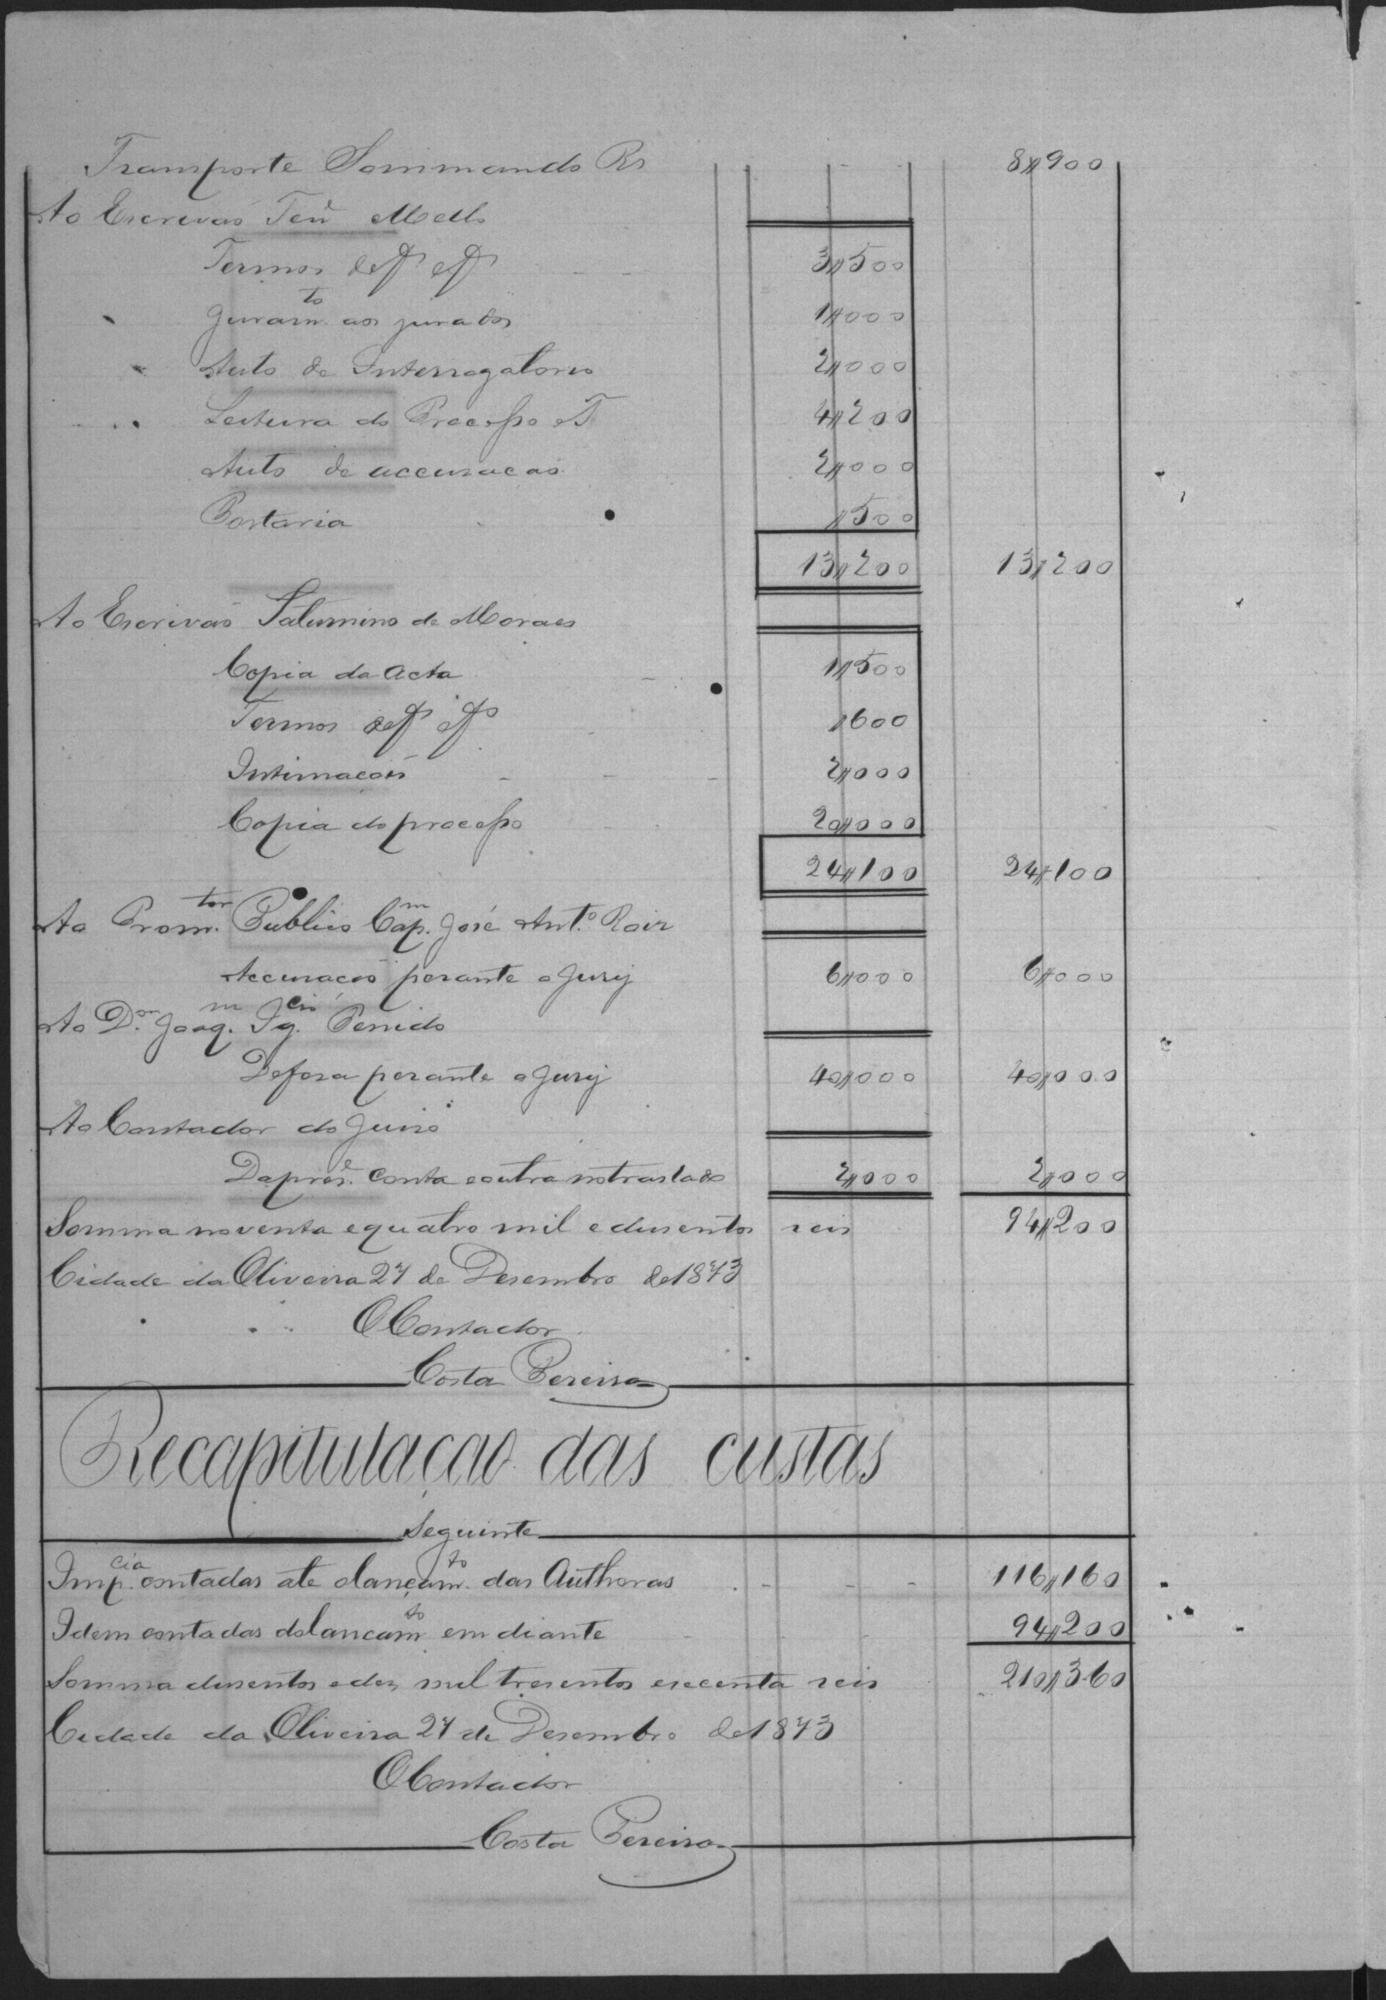 Transporte Sommando Rs 8$900
Ao Escrivão Tene Mello
Termos 3$500
Juramto aos jurados 1$000
Auto de Interrogatorio 2$000
Leitura do Processo 4$200
Auto de accusacão 2$000
Portaria $500
13$200 13$200
Ao Escrivão Saturnino de Moraes
Copia da Acta 1$500
Termos $600
Intimacoés 2$000
Copia do processo 20$000
24$100 24$100
Ao Promtor Publico Capm José Anto Roiz
Accusacão perante o Jury 6$000 6$000
Ao Dor Joaqm Igcio Penido
Defesa perante o Jury 40$000 40$000
Ao Contador do Juiso
Da preste conta e outra no traslado 2$000 2$000
Somma noventa e quatro mil e dusentos reis 94$200
Cidade da Oliveira 27 de Desembro de 1873
O Contador
Costa Pereira
Recapitulaçao das custas
Seguinte
Impcia contadas ate o lançamto das Authoras 116$160
Idem contadas do lancamto em diante 94$200
Somma dusentos e des mil tresentos e secenta reis 210$360
Cidade da Oliveira 27 de Desembro de 1873
O Contador
Costa Pereira